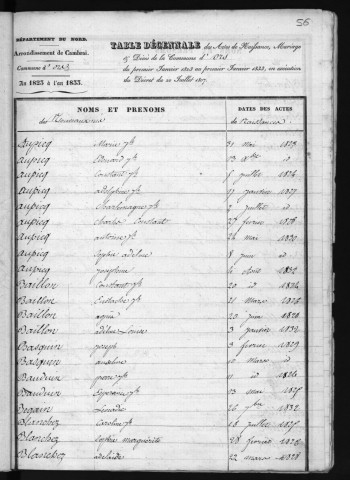 56
DÉPARTEMENT DU NORD.
Arrondissement de Cambrai.
Commune d'Ors
An 1823 à l'an 1833.
TABLE DÉCENNALE des Actes de Naissance, Mariage
& Décès de la Commune d'Ors
du premier Janvier 1823 au premier Janvier 1833, en exécution
du Décret du 20 Juillet 1807.
NOMS ET PRENOMS
des
DATES DES ACTES
de Naissance
Aupicq Marie 31 mai 1823
Aupicq Edouard 13 id
Aupicq Constant 5 juillet 1826
Aupicq adolphine 17 janvier 1827
Aupicq Charlemagne 7 juillet id
Aupicq Charles Constant 27 février 1828
Aupicq antoine 26 mai 1830
Aupicq Sophie adeline 8 juin id
Aupicq joséphine 6 1832
Baillon Constant 20 id 1824
Baillon 21 mars 1826
Baillon 20 juin 1830
Baillon Louise 3 janvier 1832
Basquin joseph 3 février 1829
Basquin 10 mars id
Bauduin pierre 11 id 1826
Bauduin 13 mai 1827
Begain 26 7bre 1832
Blanchez Caroline 18 juillet 1825
Blanchez Sophie marguerite 28 février 1826
Blanchez adelaïde 22 mars 1828